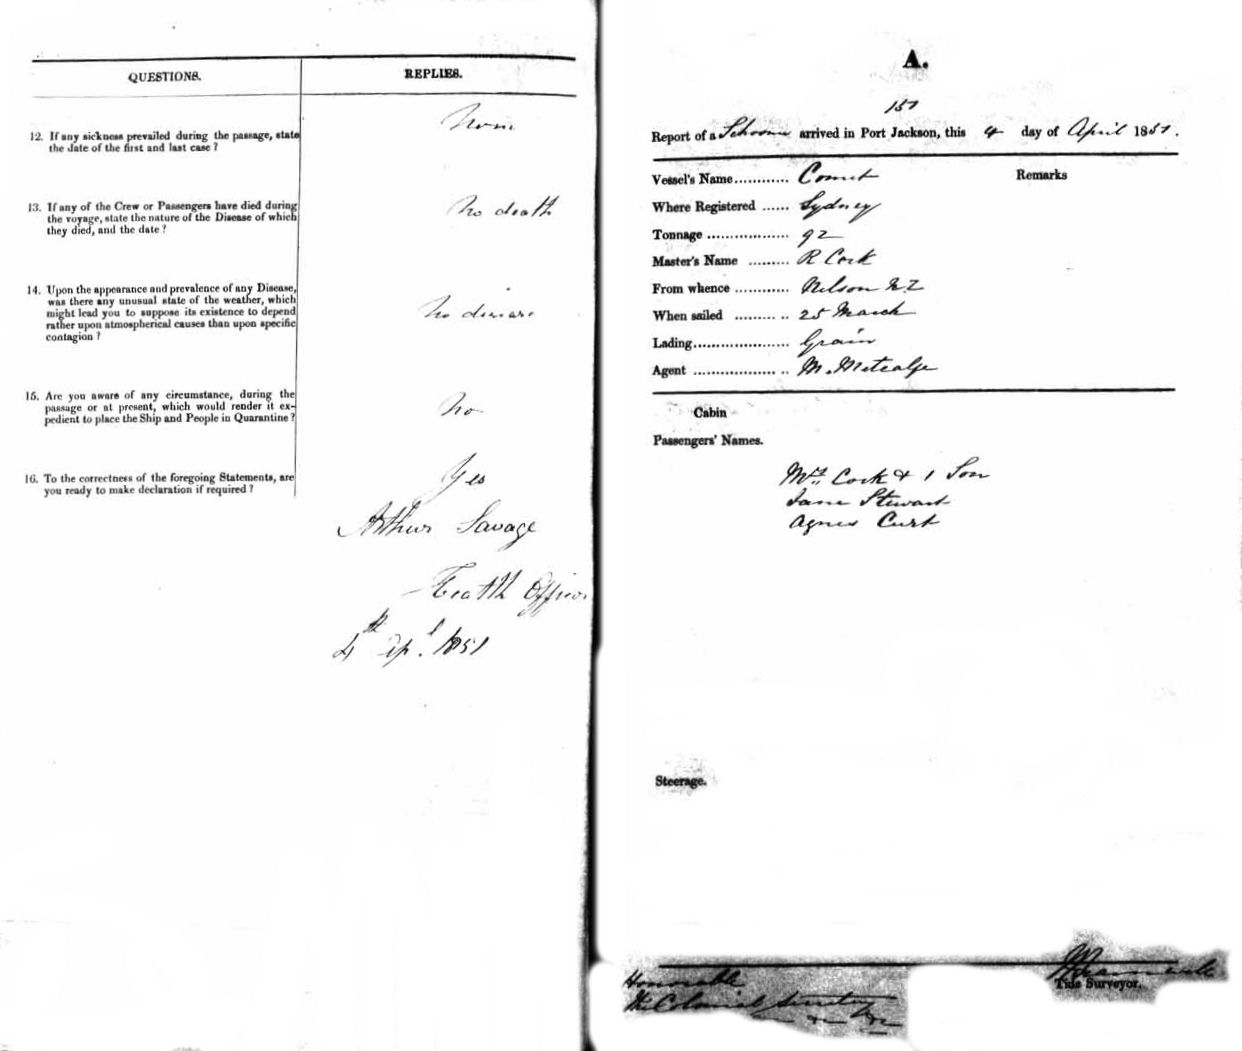 QUESTIONS.
REPLIES.
12. If any sickness prevailed during the passage, state
the date of the first and last case ?
None
13. If any of the Crew or Passengers have died during
the voyage, state the nature of the Disease of which
they died, and the date ?
No death
14. Upon the appearance and prevalence of any Disease,
was there any unusual state of the weather, which
might lead you to suppose its existence to depend
rather upon atmospherical causes than upon specific
contagion ?
No disease
15. Are you aware of any circumstance, during the
passage or at present, which would render it ex-
pedient to place the Ship and People in Quarantine ?
No
16. To the correctness of the foregoing Statements, are
you ready to make declaration if required ?
Yes
Arthur Savage
Health Officer
4th Apl. 1851
A.
151
Report of a Schooner arrived in Port Jackson, this 4 day of April 1851.
Vessel's Name............ Comet
Remarks
Where Registered ...... Sydney
Tonnage .................. 92
Master's Name ......... R Cork
From whence ............ Nelson NZ
When sailed ......... .. 25 March
Lading..................... Grain
Agent .................. .. M. Metcalfe
Cabin
Passengers' Names.
Mrs. Cork & 1 Son
Jane Stewart
Agnes Curt
Steerage.
Tide Surveyor.
Honorable
The Colonial Secretary
&c &c